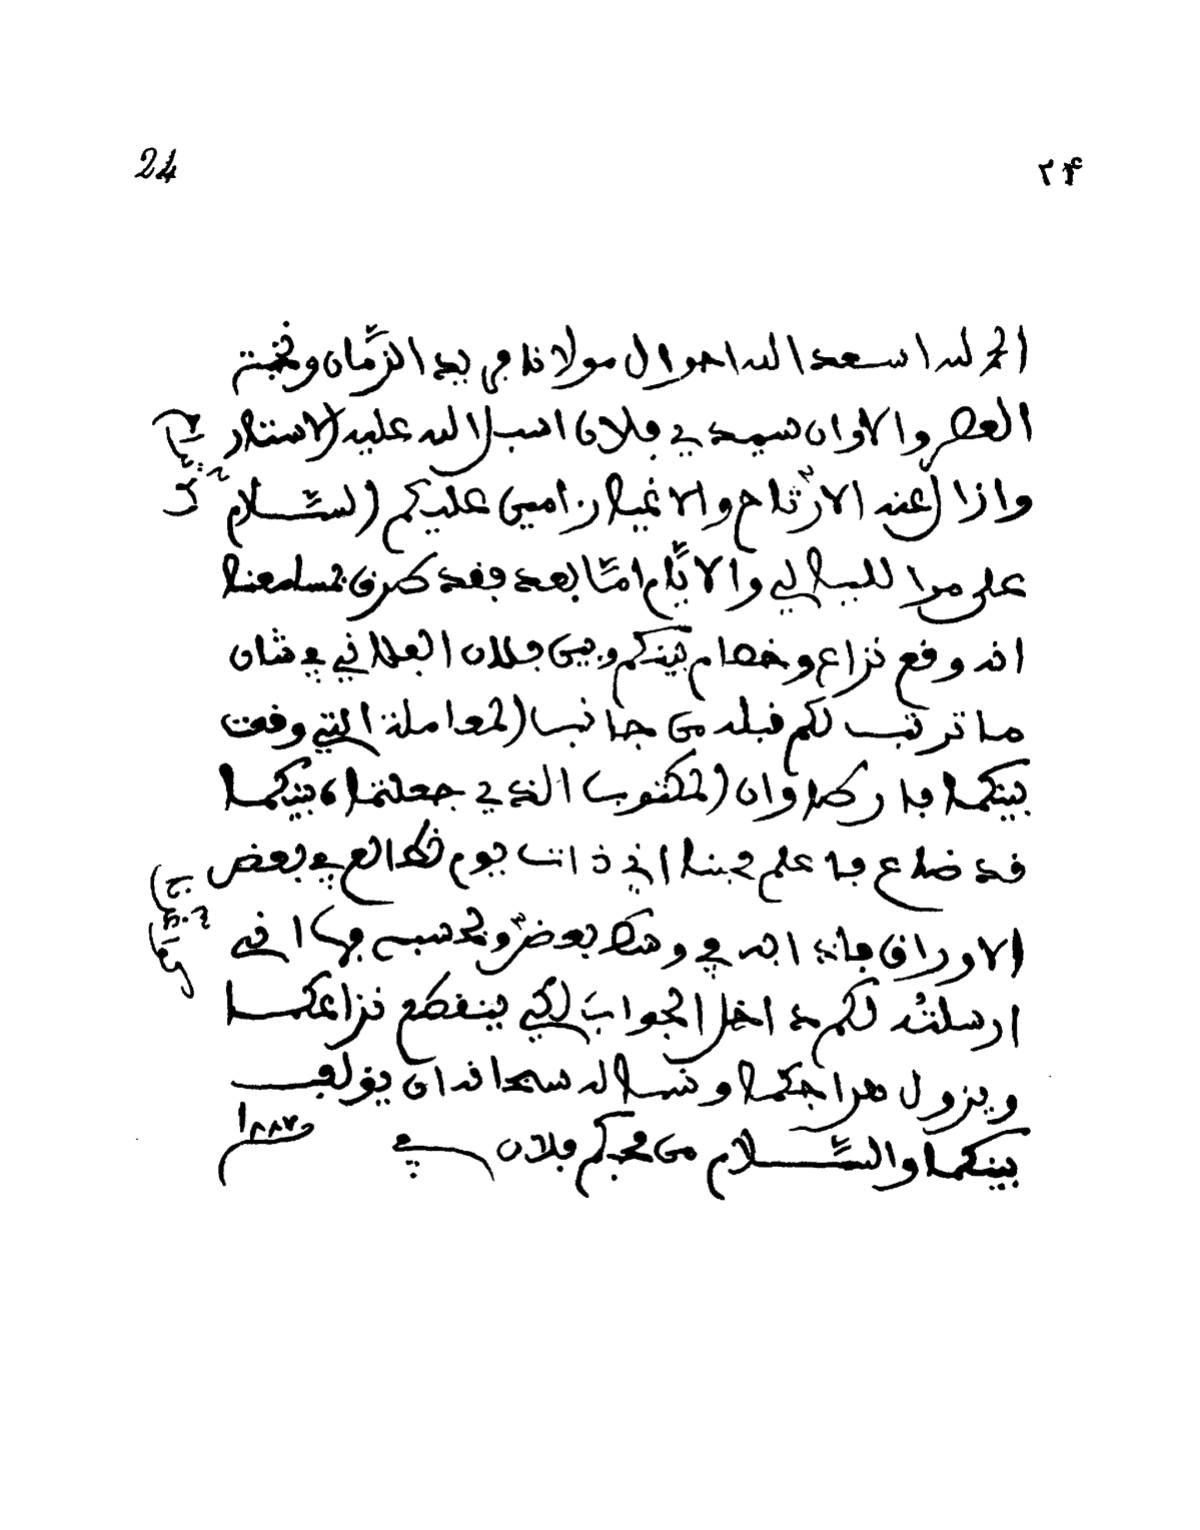 24
٢۴
الحمد لله اسعد الله احوال مولانا فريد الزّمان ونخبة
العصر والاوان سيدي فلان اسبل الله عليه الاستار
وازال عنه الاتراح والاغيار امين عليكم السّلام
على مرا الليالي والايّام امّا بعد فقد طرق مسامعنا
انه وقع نزاع وخصام بينكم وبين فلان الفلاني في شان
ما ترتب لكم قبله من جانب المعاملة التي وقعت
بينكما وان المكتوب الذي جعلتماه بينكما
قد ضاع فاعلم محبنا اني ذات يوم نطالع في بعض
الاوراق فاذا به في وسط بعض وبحسبه فها اني
ارسلتُه لكم داخل الجوابَ لكي ينقطع نزاعكما
ويزول ونسال الله سبحانه ان يؤلف
بينكما والسّلام من محبكم فلان في